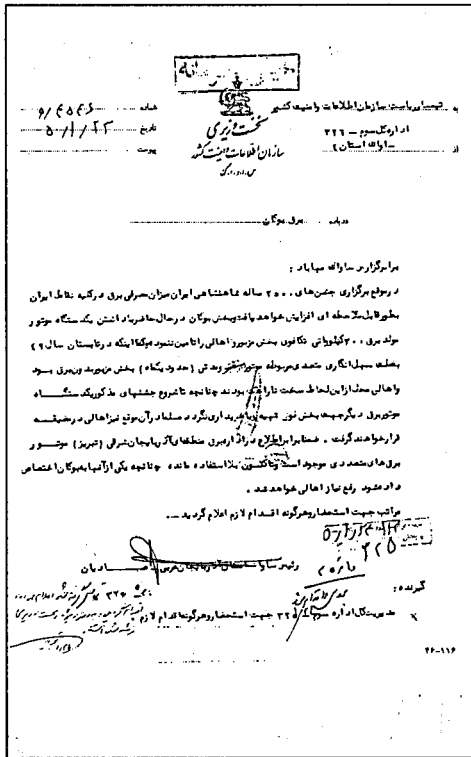 به تیمسار ریاست سازمان اطلاعات و امنیت کشور
اداره کل سوم - ۳۲۶
از ساواک استان ۴
نخست وزیری
سازمان اطلاعات و امنیت کشور
س.ا.و.ا.ک
شماره
تاریخ ۵۰/۱/۲۳
پیوست
درباره برق بوکان
برابر گزارش ساواک مهاباد :
در موقع برگزاری جشن‌های ۲۵۰۰ ساله شاهنشاهی ایران میزان مصرفی برق در کلیه نقاط ایران
بطور قابل ملاحظه ای افزایش خواهد یافت و بخش بوکان در حال حاضر با داشتن یک دستگاه موتور
مولد برق ۲۰۰ کیلوواتی تکافوی بخش مزبور و اهالی را تامین ننموده کما اینکه در تابستان سال ۴۹
بعلت سهل انگاری متصدی مربوطه موتور مدتی (حدود یکماه) بخش مزبور بدون برق بود
و اهالی محل از این لحاظ سخت ناراحت بودند چنانچه تا شروع جشنهای مذکور یک دستگاه
موتور برق دیگر جهت بخش فوق تهیه و یا خریداری نگردد مسلما در آن موقع نیز اهالی در مضیقه
قرار خواهند گرفت . ضمنا برابر اطلاع در اداره برق منطقه‌ای آذربایجان شرقی (تبریز) موتور
برق های متعددی موجود است و تاکنون بلا استفاده مانده چنانچه یکی از آنها به بوکان اختصاص
داده شود رفع نیاز اهالی خواهد شد .
مراتب جهت استحضار و هرگونه اقدام لازم اعلام گردید .
رئیس ساواک استان آذربایجان غربی
گیرنده :
مدیریت کل اداره سوم ۳۲۵ جهت استحضار و هرگونه اقدام لازم
۴۶-۱۱۶